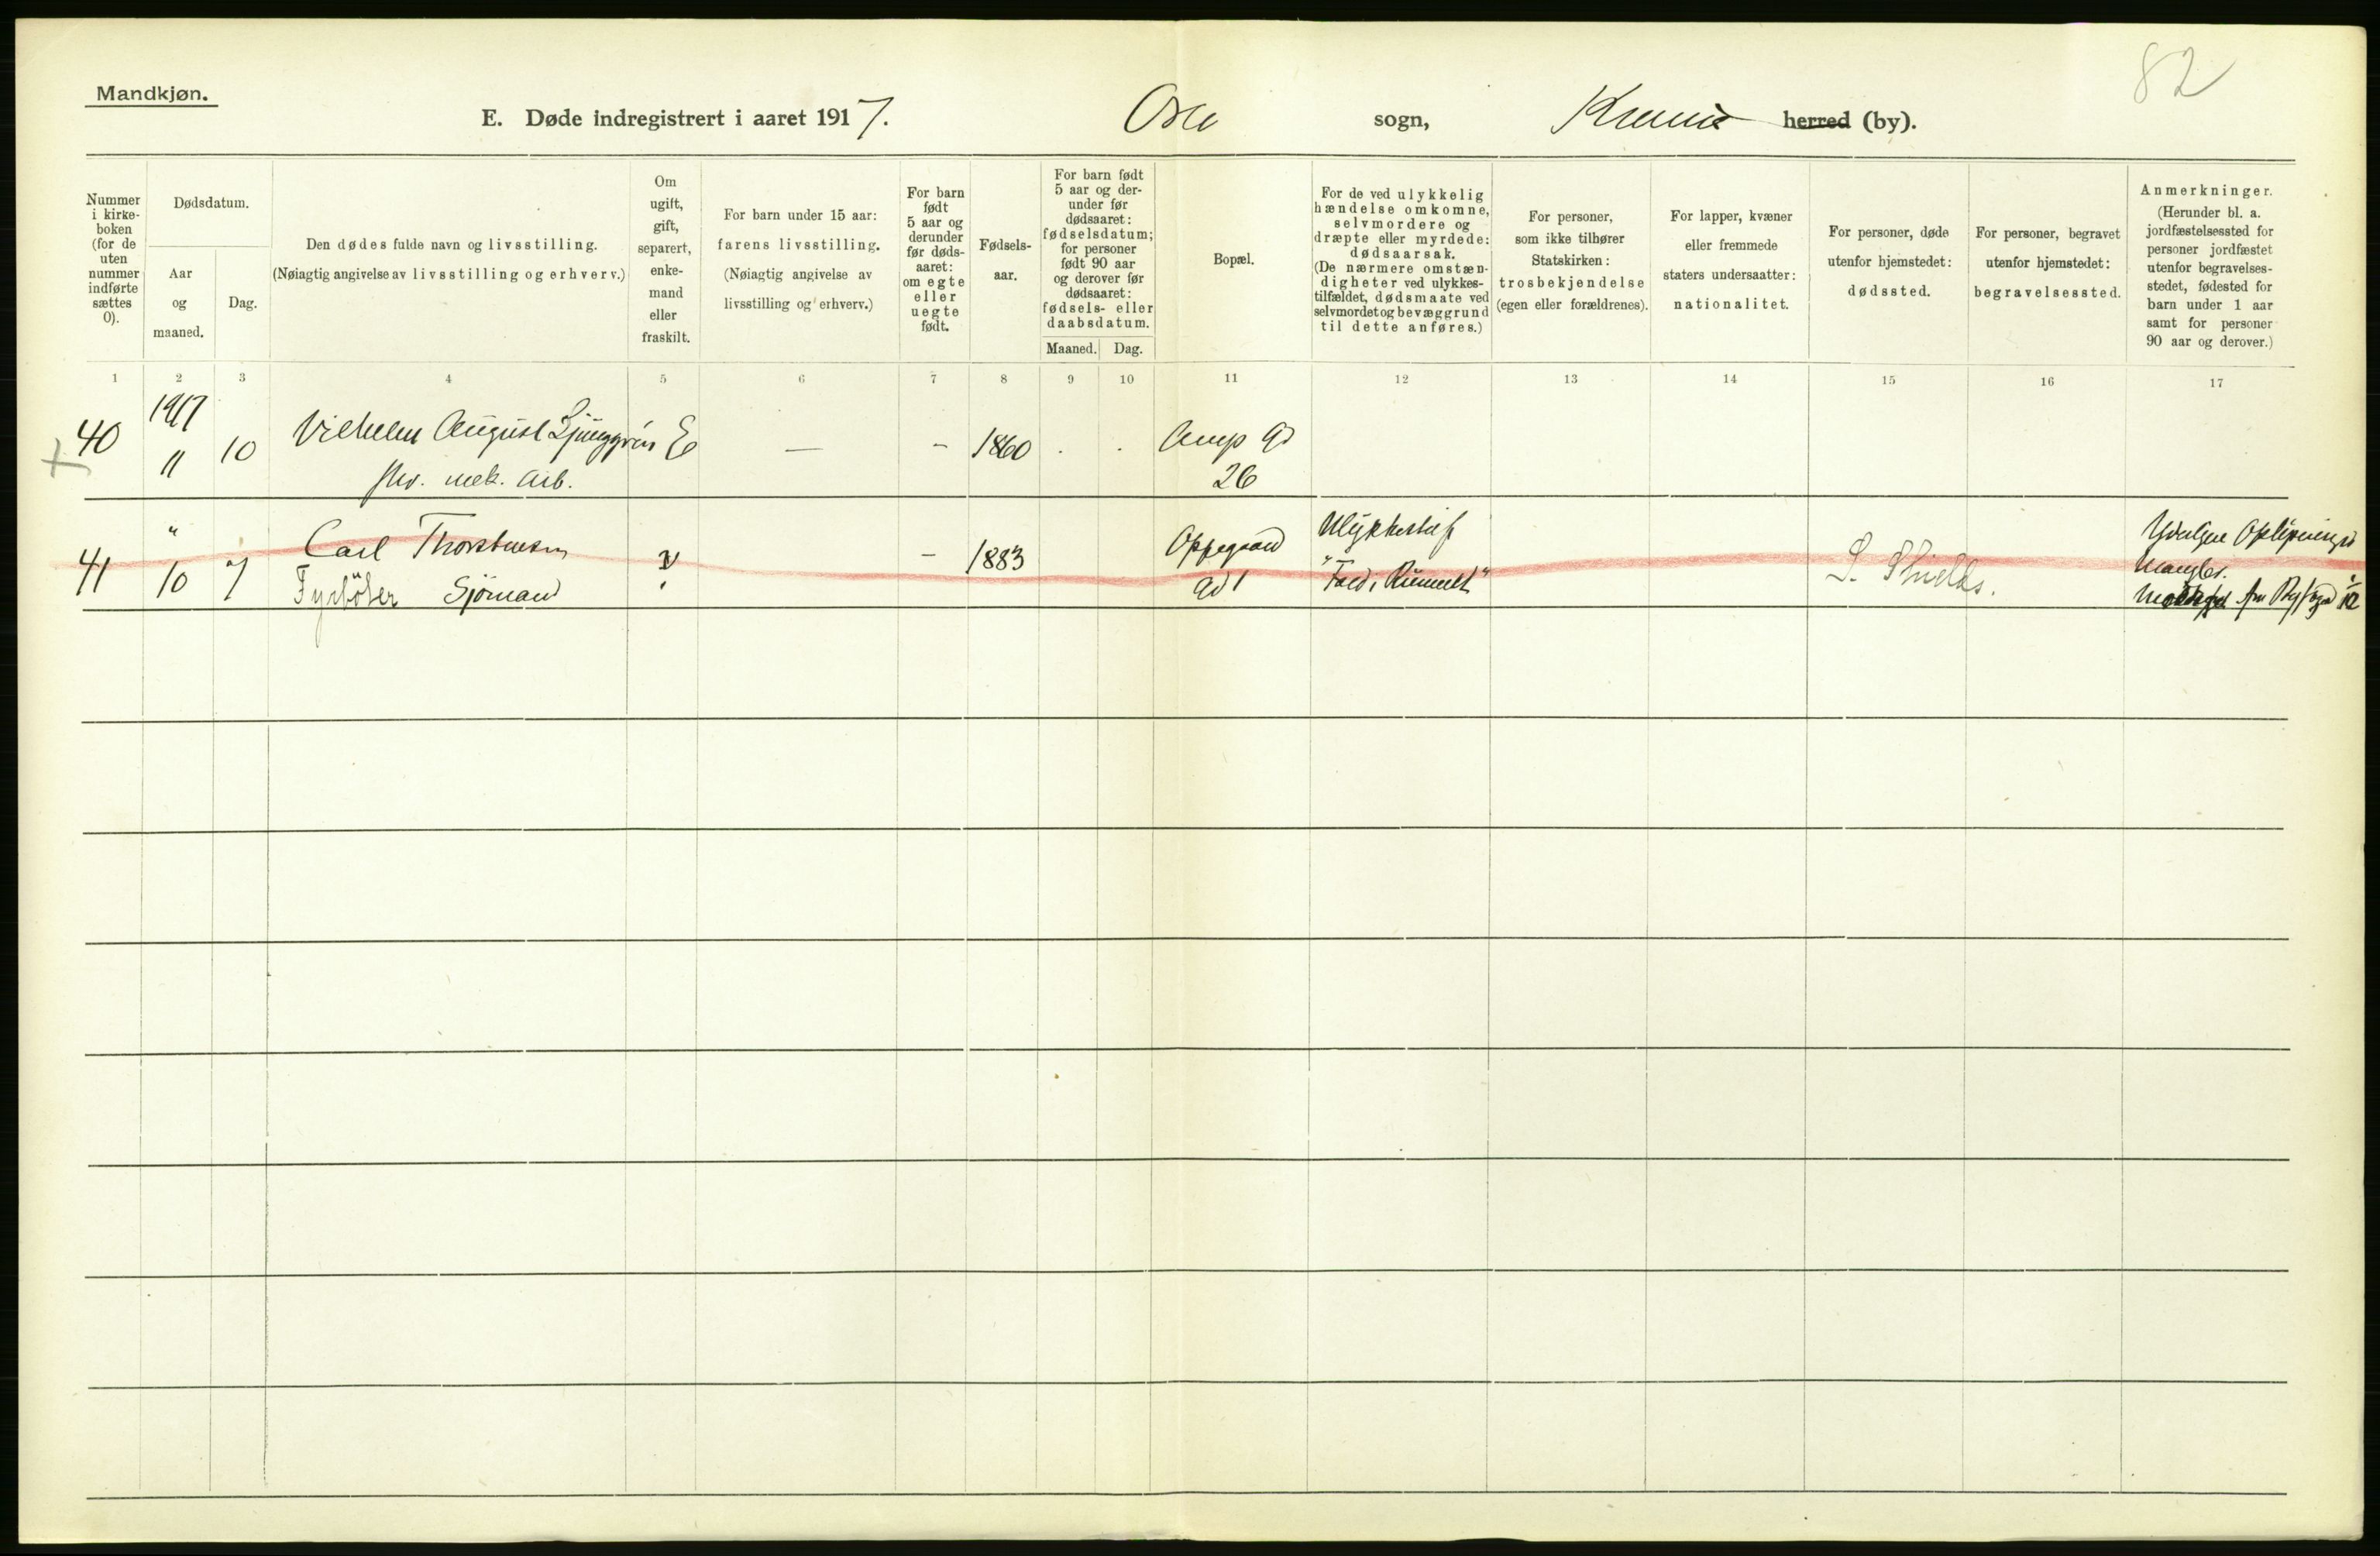 82
Mandkjøn.
E. Døde indregistrert i aaret 1917. Oslo sogn, herred (by).
Nummer
i kirke-
boken
(for de
uten
nummer
indførte
sættes
0).
Dødsdatum.
Aar
og
maaned.
Dag.
Den dødes fulde navn og livsstilling.
(Nøiagtig angivelse av livsstilling og erhverv.)
Om
ugift,
gift,
separert,
enke-
mand
eller
fraskilt.
For barn under 15 aar:
farens livsstilling.
(Nøiagtig angivelse av
livsstilling og erhverv.)
For barn
født
5 aar og
derunder
før døds-
aaret:
om egte
eller
uegte
født.
Fødsels-
aar.
For barn født
5 aar og der-
under før
dødsaaret:
fødselsdatum;
for personer
født 90 aar
og derover før
dødsaaret:
fødsels- eller
daabsdatum.
Maaned.
Dag.
Bopæl.
For de ved ulykkelig
hændelse omkomne,
selvmordere og
dræpte eller myrdede:
dødsaarsak.
(De nærmere omstæn-
digheter ved ulykkes-
tilfældet, dødsmaate ved
selvmordet og bevæggrund
til dette anføres.)
For personer,
som ikke tilhører
Statskirken:
trosbekjendelse
(egen eller forældrenes).
For lapper, kvæner
eller fremmede
staters undersaatter:
nationalitet.
For personer, døde
utenfor hjemstedet:
dødssted.
For personer, begravet
utenfor hjemstedet:
begravelsessted.
Anmerkninger.
(Herunder bl. a.
jordfæstelsessted for
personer jordfæstet
utenfor begravelses-
stedet, fødested for
barn under 1 aar
samt for personer
90 aar og derover.)
1 2 3 4 5 6 7 8 9 10 11 12 13 14 15 16 17
1917
40 11 10 Vilhelm August Ljunggrén E — - 1860 . .
mek. Arb. 26
41 " 10 7 Carl Thorstensen - 1883 Oppegaard
Fyrböter Sjömand gd 1
S. Shields.
Mangler.